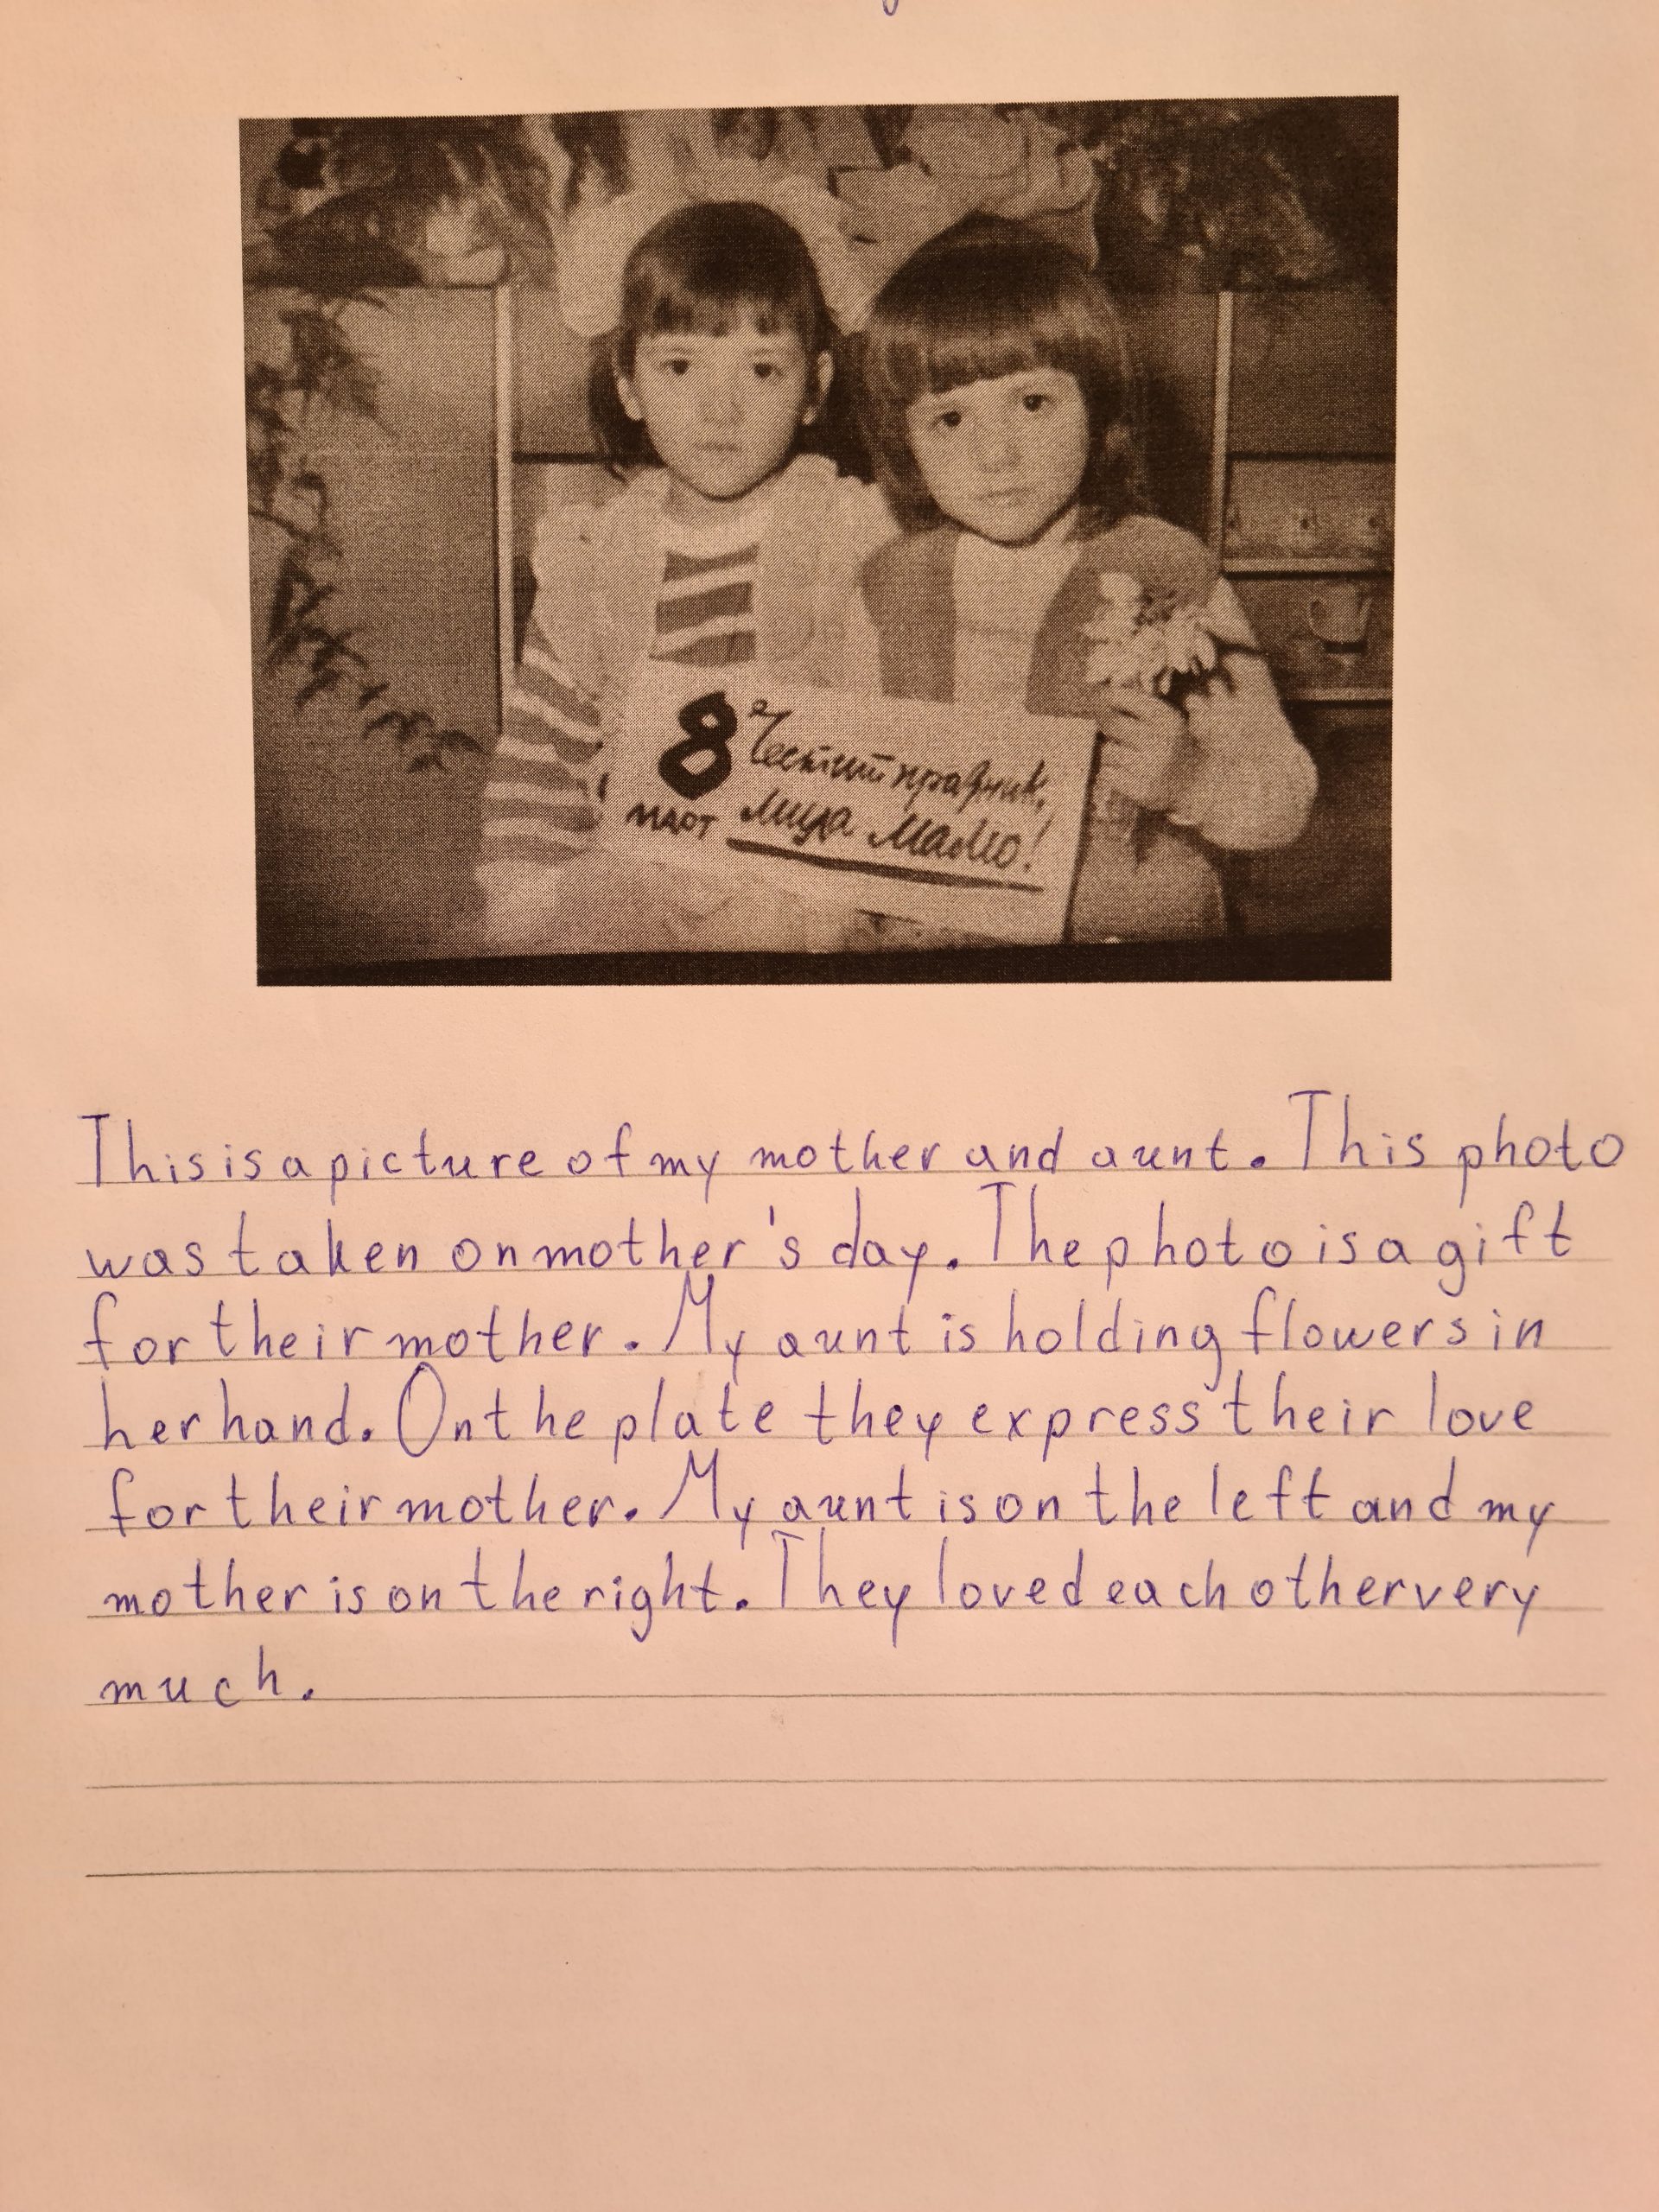 8 Честит празник,
март мила Мамо!
This is a picture of my mother and aunt. This photo
was taken on mother's day. The photo is a gift
for their mother. My aunt is holding flowers in
her hand. On the plate they express their love
for their mother. My aunt is on the left and my
mother is on the right. They loved each other very
much.